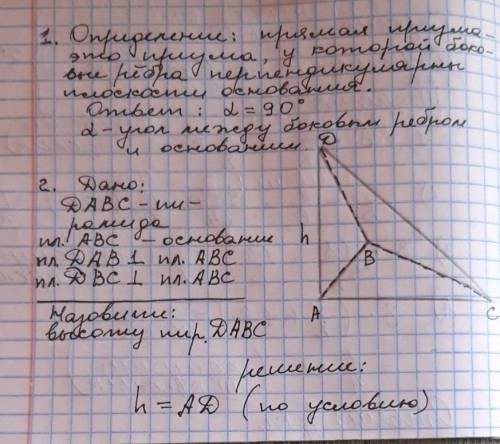 1. Определение: прямая призма-
это призма, у которой боко-
вые рёбра перпендикулярны
плоскости основания.
Ответ: α = 90°
α - угол между боковым ребром
и основанием
2. Дано:
DABC - пи-
рамида
пл. ABC - основание
пл. DAB ⊥ пл. ABC
пл. DBC ⊥ пл. ABC
Назовите:
высоту пир. DABC
решение:
h = AD (по условию)
D
h
B
A
C